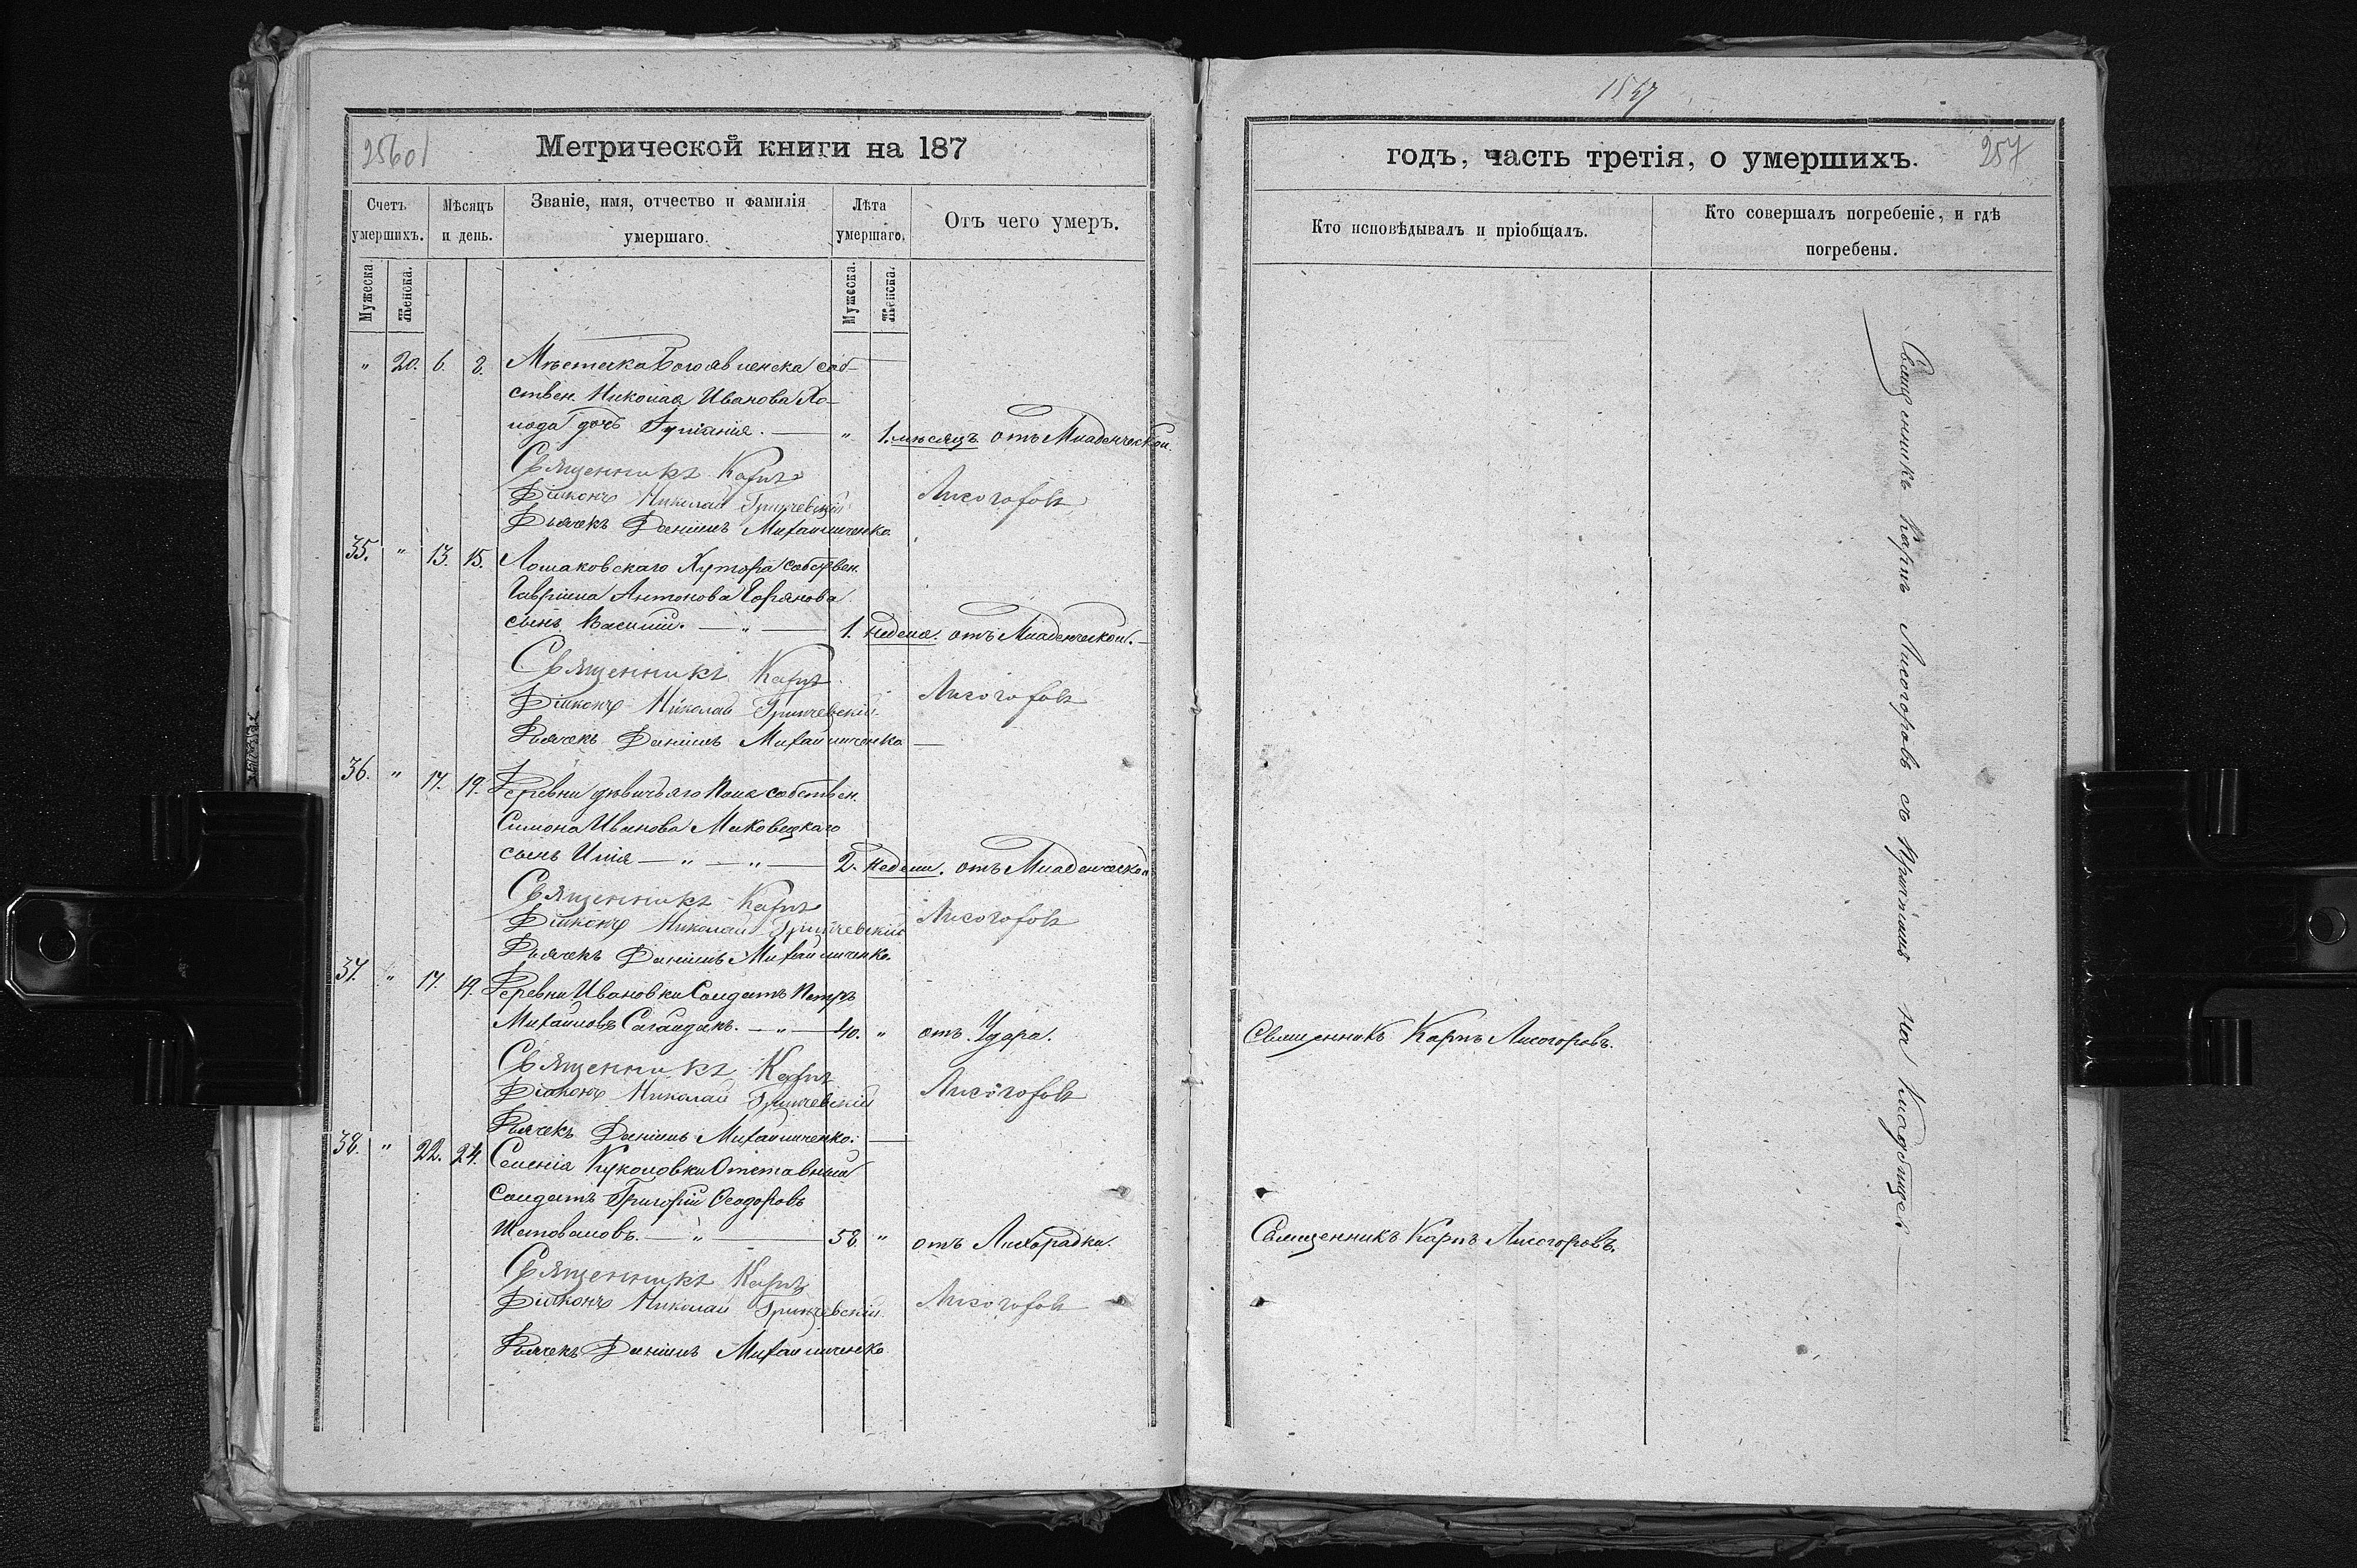 1557
256об
Метрической книги на 187
годъ, часть третія, о умершихъ.
257
Счетъ умершихъ.
Мѣсяцъ и день.
Званіе, имя, отчество и фамилія умершаго.
Лѣта умершаго.
Отъ чего умеръ.
Кто исповѣдывалъ и пріобщалъ.
Кто совершалъ погребеніе, и гдѣ погребены.
Мужеска.
Женска.
Мужеска.
Женска.
" 20. 6. 8. Мѣстечка Богоявленска соб-
ствен. Николая Иванова Хо-
лода дочь Іуліанія. — " 1. мѣсяцъ отъ Младенческой.
Священникъ Карпъ Лисогоровъ
Діаконъ Николай Гринчевскій
Дьячекъ Даніилъ Михайличенко.
35. " 13. 15. Лошаковскаго Хутора собствен.
Гавріила Антонова Горянова
сынъ Василій. — " — 1. недѣля. отъ Младенческой. —
Священникъ Карпъ Лисогоровъ
Діаконъ Николай Гринчевскій.
Дьячекъ Даніилъ Михайличенко —
36. " 17. 19. Деревни Дѣвичьяго Поля собствен.
Симона Иванова Маковецкаго
сынъ Илія — " — " — 2. недѣли. отъ Младенческой
Священникъ Карпъ Лисогоровъ
Діаконъ Николай Гринчевскій
Дьячекъ Даніилъ Михайличенко.
37. " 17. 19. Деревни Ивановки Солдатъ Петръ
Михайловъ Сагайдакъ. — " — 40. " отъ Удара. Священникъ Карпъ Лисогоровъ.
Священникъ Карпъ Лисогоровъ
Діаконъ Николай Гринчевскій
Дьячекъ Даніилъ Михайличенко. —
38. " 22. 24. Селенія Куколовки Отставный
Солдатъ Григорій Ѳеодоровъ
— " — 58 " отъ Лихорадки. Священникъ Карпъ Лисогоровъ.
Священникъ Карпъ Лисогоровъ
Діаконъ Николай Гринчевскій
Дьячекъ Даніилъ Михайличенко
Священникъ Карпъ Лисогоровъ съ Причтомъ на Кладбищѣ —